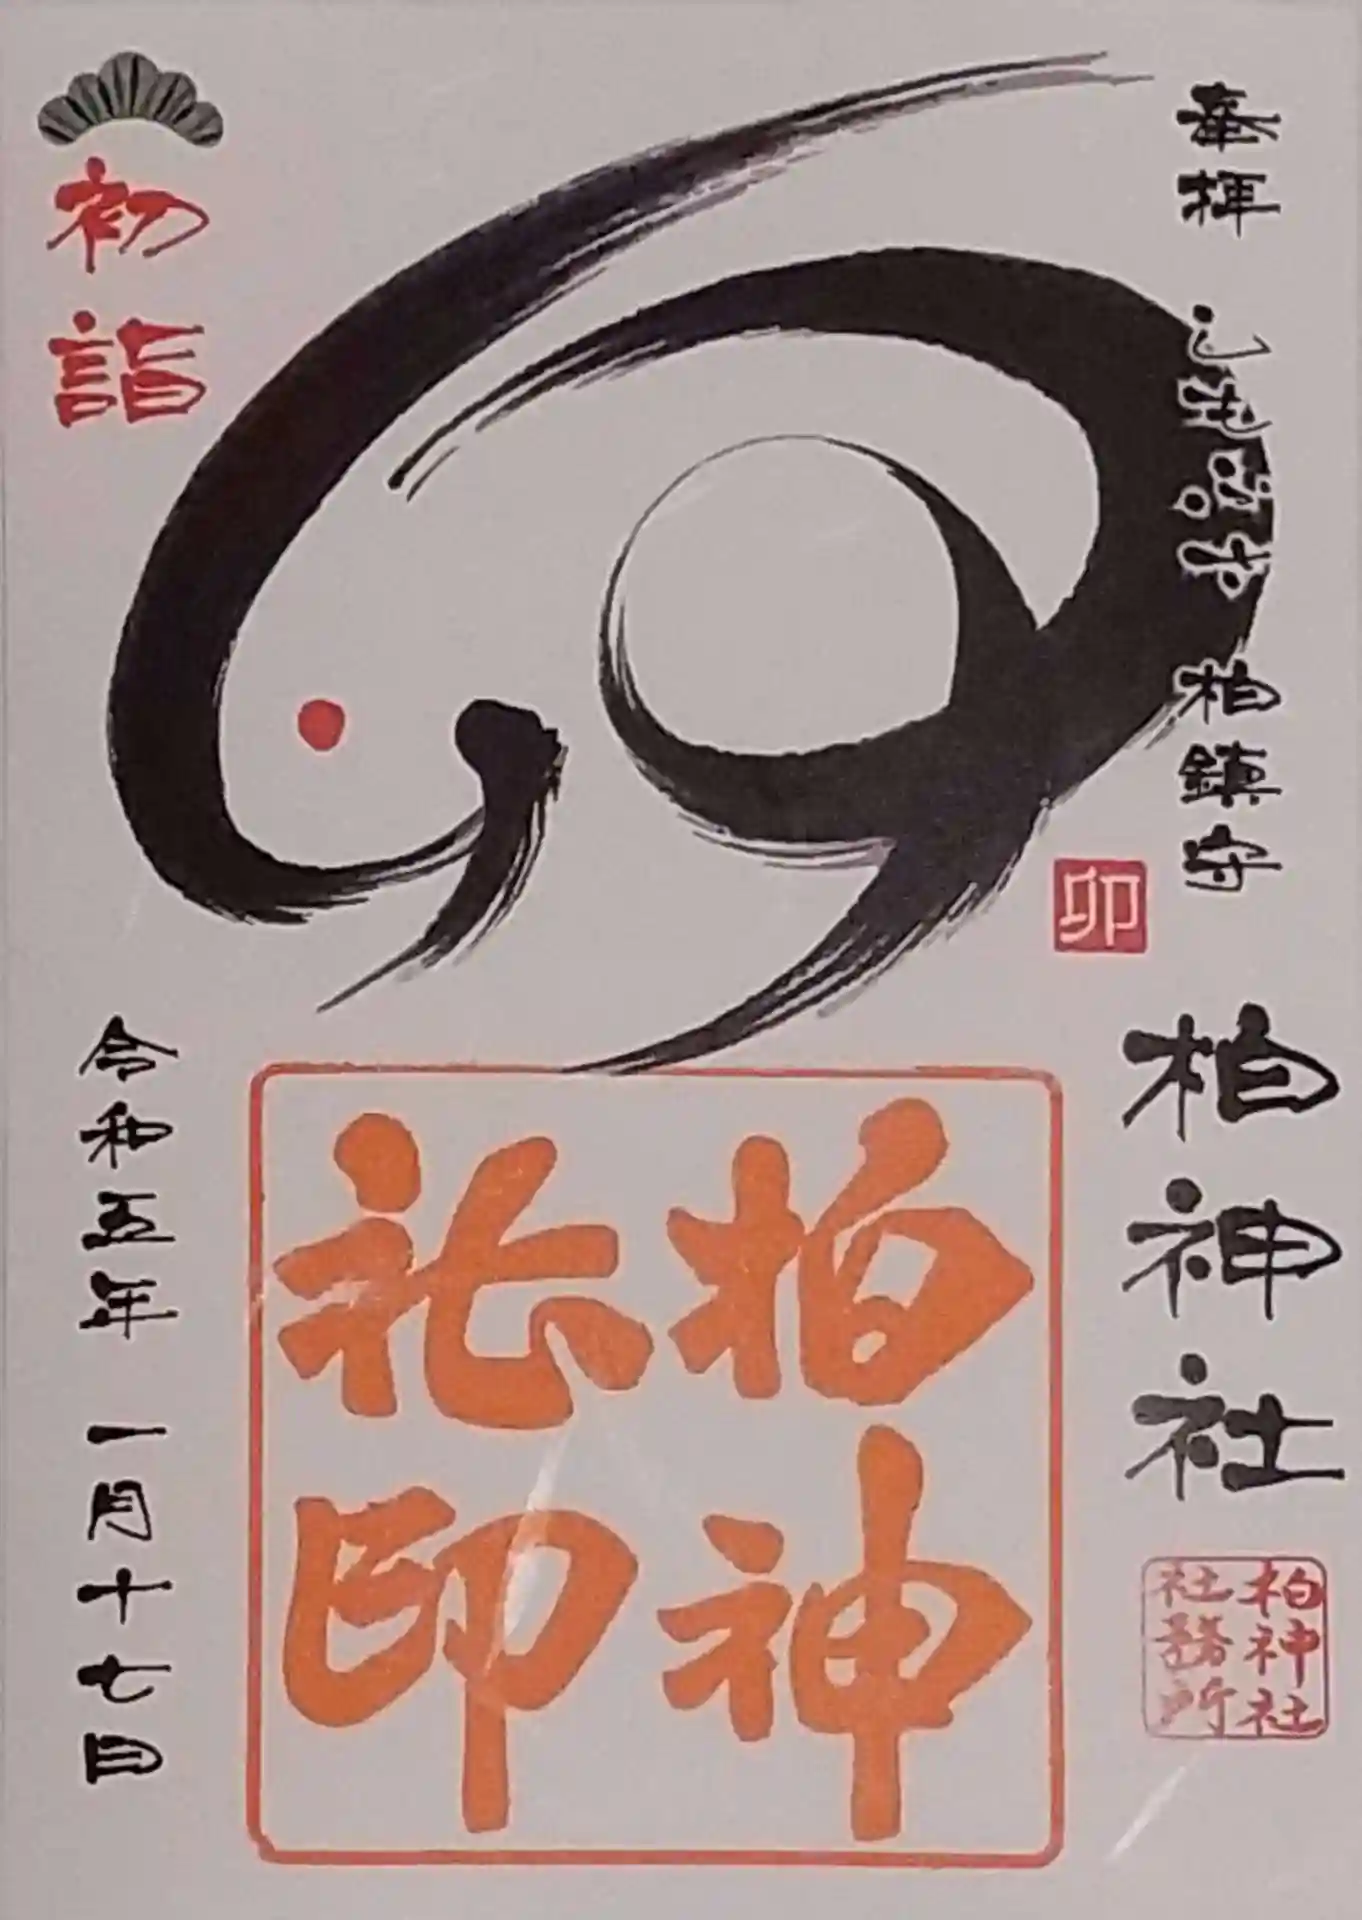 奉拝
柏鎮守
卯
卯
柏神社
柏神社
社務所
柏神
社印
初詣
令和五年 一月十七日